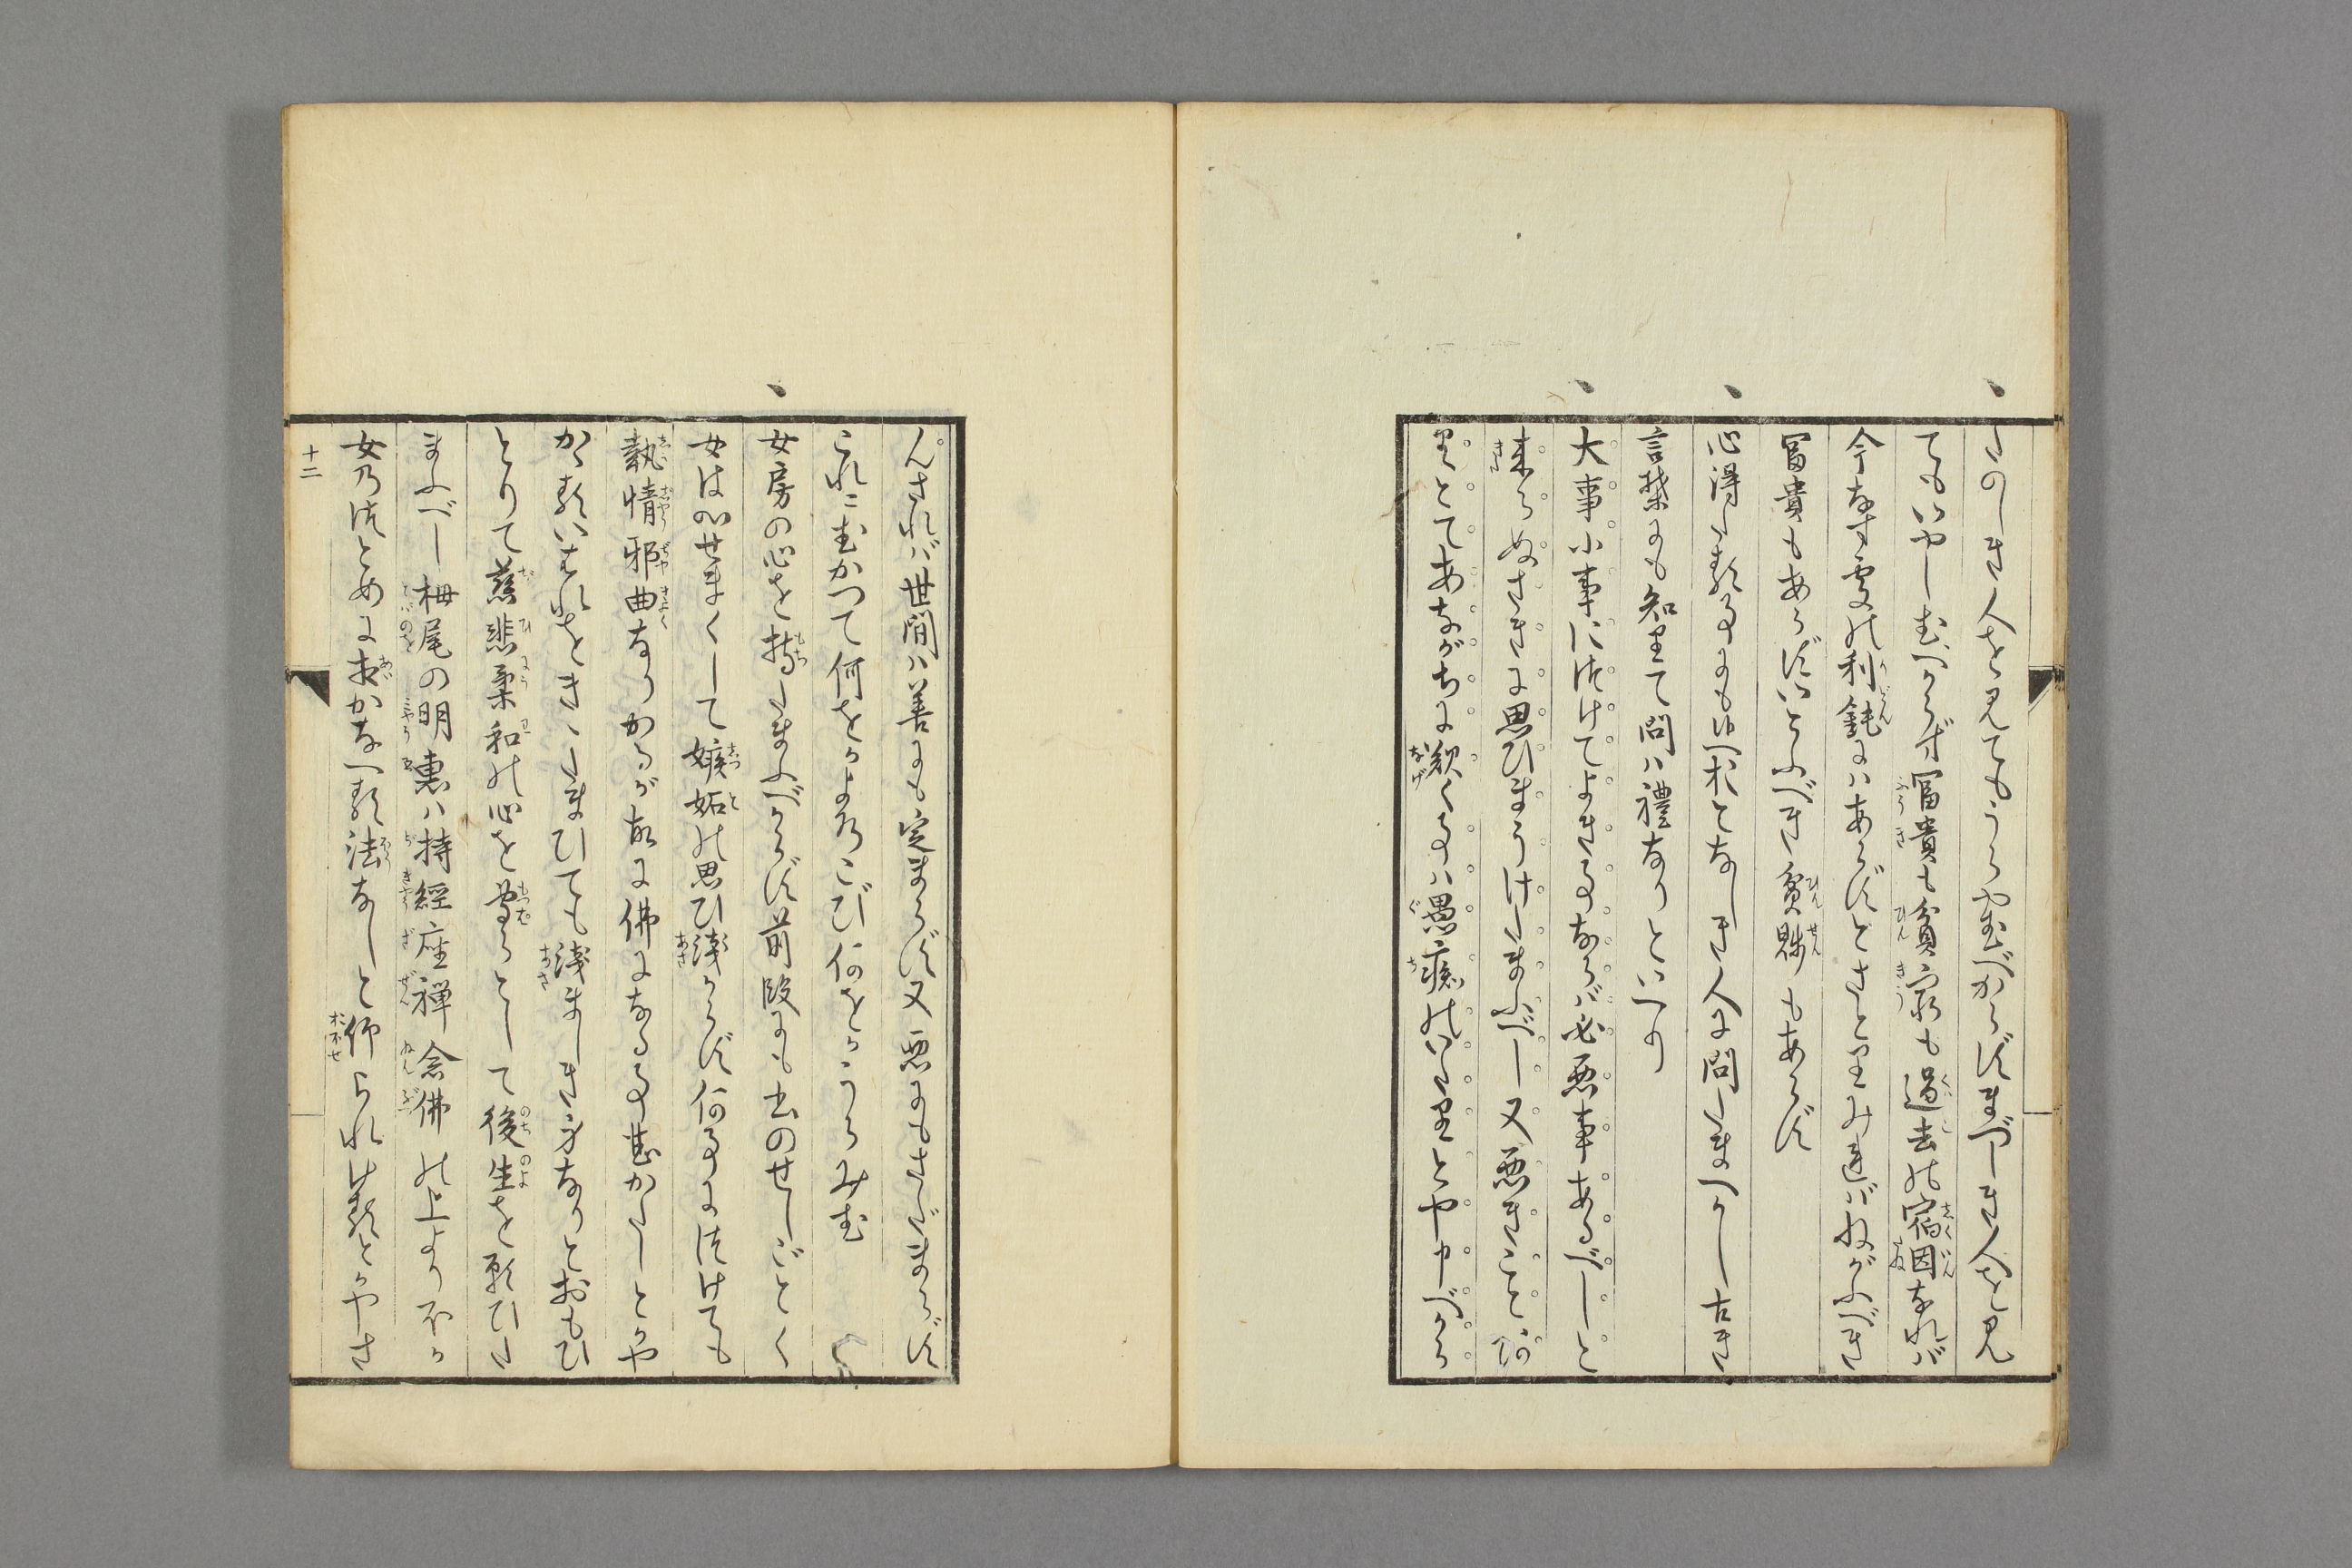 たのしき人を見てもうらやむべからずまづしき人を見
てもいやしむべからず富貴も貧窮も過去の宿因なれバ
今なす処の利鈍にハあらずとさとりみればねがふべき
富貴もあらずいとふべき貧賎もあらず
心得たる事にも猶おとなしき人に問たまへかし古き
言葉にも知りて問ハ禮なりといへり
大事小事に付けてよき事あらバ必悪事あるべしと
来らぬさきに思ひまうけたまふべし又悪きこと
りとてあながちに歎く事ハ愚癡のいたりとや申べから
んされバ世間ハ善にも定まらず又悪にもさだまらず
これにむかつて何をかよろこび何をかうらみむ
女房の心を持たまふべからず前段にも書のせしごとく
女は心せまくして嫉妬の思ひ浅からず何事に付けても
執情邪曲なりかるが故に佛になる事甚かたしとかや
かゝるいはれをきゝたまひても浅ましき身なりとおもひ
とりて慈悲柔和の心を専らとして後生を願ひた
まふべし栂尾の明恵ハ持經座禅念佛の上よりほか
女のつとめにあひかなへる法なしと仰られけるとかやさ
十二